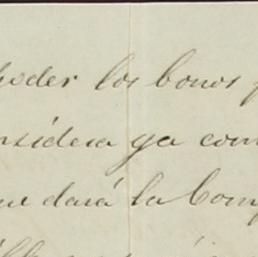 poder los bonos
considera ya com
que dará la Comp